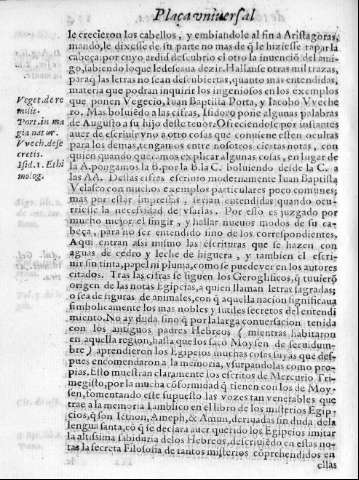 Plaça vniuersal
le crecieron los cabellos, y embiandole al fin a Aristagoras,
mandò, le dixesse de su parte no mas de q̃ le hiziesse rapar la
cabeça: por cuyo ardid descubrio el otro la inuenciõ del ami-
go, sabiendo lo que se desseaua dezir. Hallanse otras mil trazas,
para q̃ las letras no sean descubiertas, quanto mas entendidas,
materia que podran inquirir los ingeniosos en los exemplos
que ponen Vegecio, Iuan Baptista Porta, y Iacobo Vveche
ro. Mas boluiẽdo a las cifras, Isidoro pone algunas palabras
de Augusto a su hijo deste tenor. Ofreciendose por instantes
auer de escriuir vno a otro cosas que conuiene esten ocultas
para los demas, tengamos entre nosotros ciertas notas, con
quien quando queramos explicar algunas cosas, en lugar de
la A. pongamos la B. por la B. la C. boluiendo desde la C. a
las AA. Destas cifras escriuio modernamente Iuan Baptista
Velasco con muchos exemplos particulares poco comunes;
mas por estar impressas, serian entendidas quando ocu-
rriesse la necessidad de vsarlas. Por esso es juzgado por
mucho mejor el fingir, y hallar nueuos modos de su ca-
beça, para no ser entendido sino de los correspondientes.
Aqui entran assi mismo las escrituras que se hazen con
aguas de cedro y leche de higuera, y tambien el escri-
uir sin tinta, papel ni pluma, como se puede ver en los autores
citados. Tras las cifras se siguen los Geroglificos, q̃ tuuierõ
origen de las notas Egipcias, a quien llaman letras sagradas,
o sea de figuras de animales, con q̃ aquella nacion significaua
simbolicamente los mas nobles y sutiles secretos del entendi
miento. No ay duda, sino q̃ por la larga conuersacion tenida
con los antiguos padres Hebreos (mientras habitaron
en aquella region, hasta que los sacò Moysen de seruidum-
bre) aprendieron los Egipcios muchas cosas suyas que des-
pues encomendaron a la memoria, vsurpandolas como pro-
prias. Esto muestran claramente los escritos de Mercurio Tri-
megisto, por la mucha cõformidad q̃ tienen con los de Moy-
sen, fomentando este supuesto las vozes tan venerables que
trae a la memoria Iamblico en el libro de los misterios Egip-
cios, q̃ son Ieiton, Ameph, & Amun, deriuadas sin duda de la
lengua santa, cõ q̃ se declara auer querido los Egipcios imitar
la altissima sabiduria de los Hebreos, descriuiẽdo en estas no-
tas la secreta Filosofia de tantos misterios cõprehendidos en
ellas
Veget. de re
milit.
Port. in ma
gia natur.
Vvech. de se
cretis.
Isid. l. Ethi
molog.